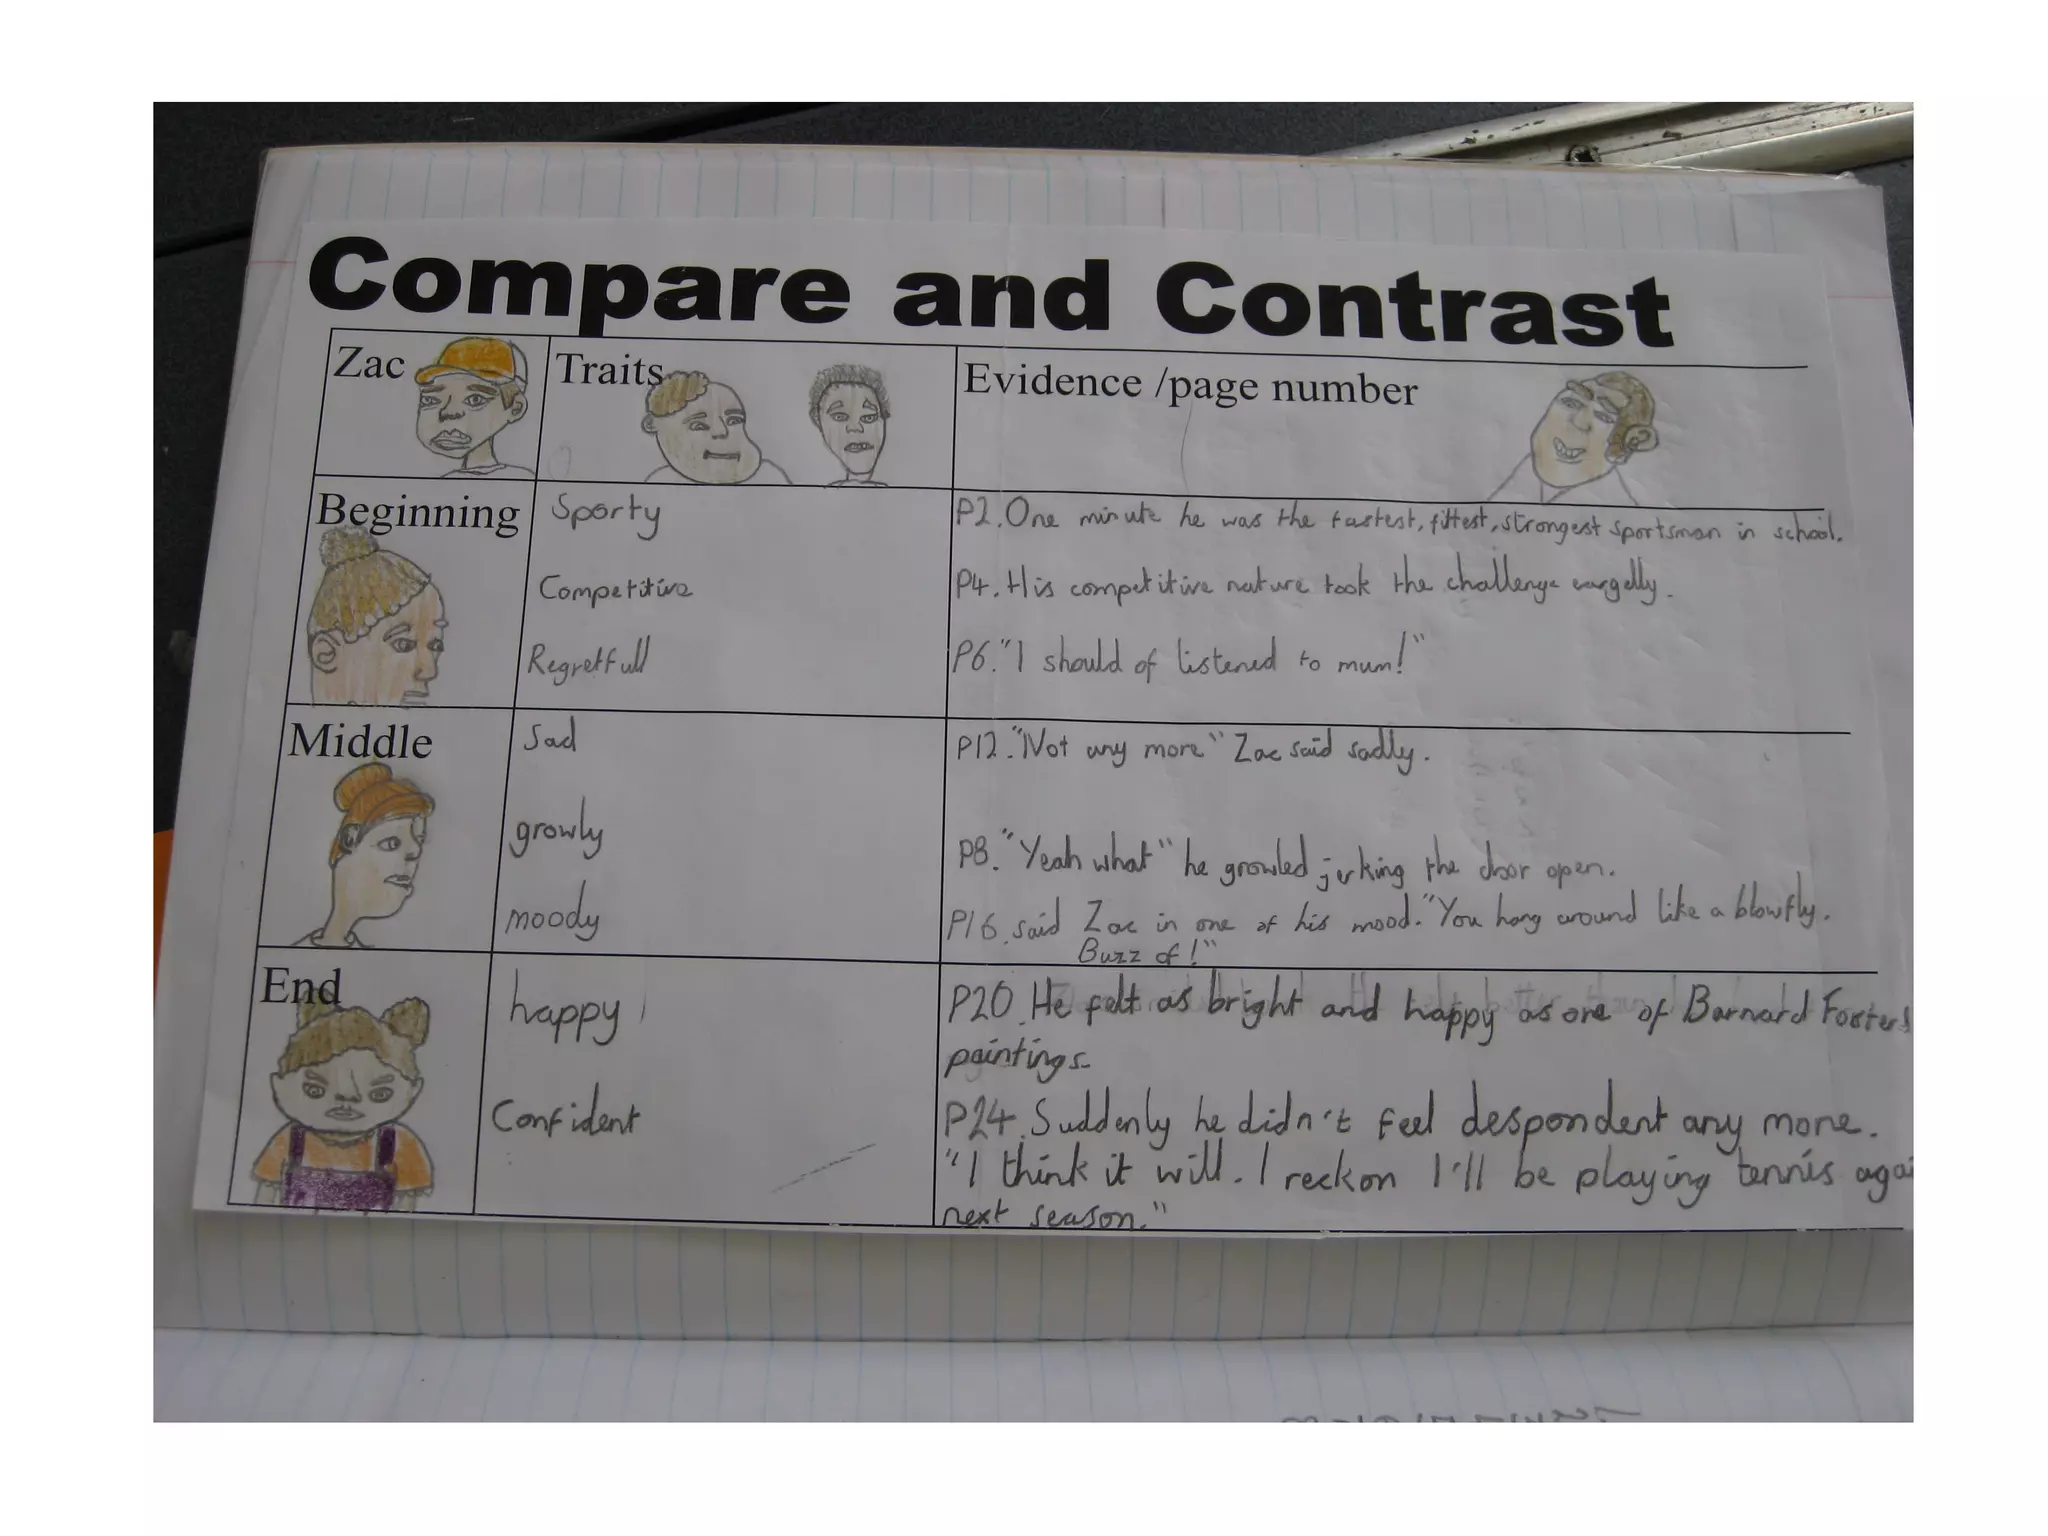 Compare and Contrast
Zac
Traits
Evidence /page number
Beginning
Sporty
P2. One minute he was the fastest, fittest, strongest sportsman in school.
Competitive
P4. His competitive nature took the challenge eargelly.
Regretfull
P6. "I should of listened to mum!"
Middle
Sad
P12. "Not any more" Zac said sadly.
growly
P8. "Yeah what" he growled jerking the door open.
moody
P16. said Zac in one of his mood. "You hang around like a blowfly.
Buzz of!"
End
happy
P20. He felt as bright and happy as one of Barnard Fosters
paintings.
Confident
P24. Suddenly he didn't feel despondent any more.
"I think it will. I reckon I'll be playing tennis agai
next season."